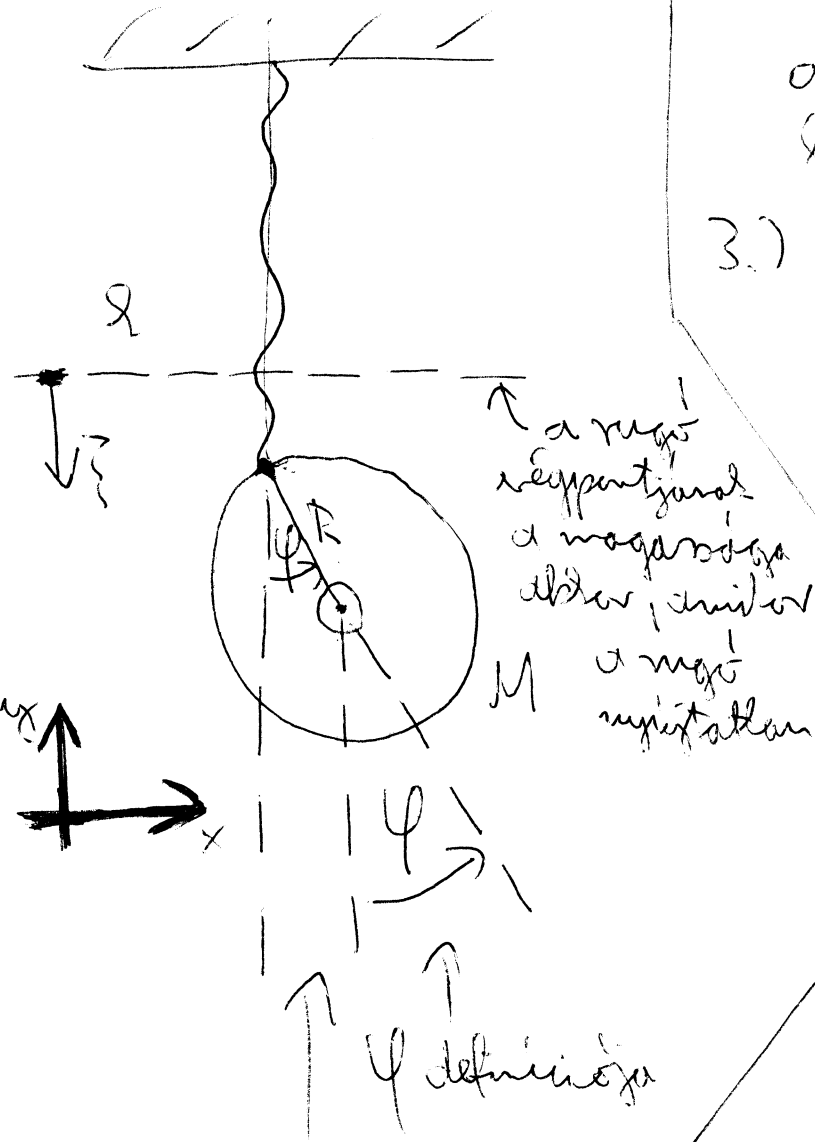 3.)
l
a rugó
végpontjának
a magassága
akkor, amikor
a rugó
nyújtatlan
ξ
φ R
M
y
x
φ
φ definíciója